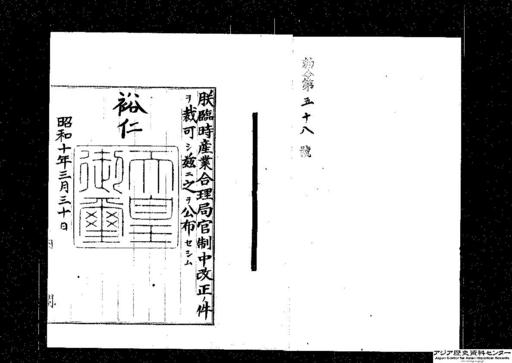 勅令第五十八號
朕臨時産業合理局官制中改正ノ件
ヲ裁可シ茲ニ之ヲ公布セシム
裕仁
天皇
御璽
昭和十年三月三十日
内閣
アジア歴史資料センター
Japan Center for Asian Historical Records